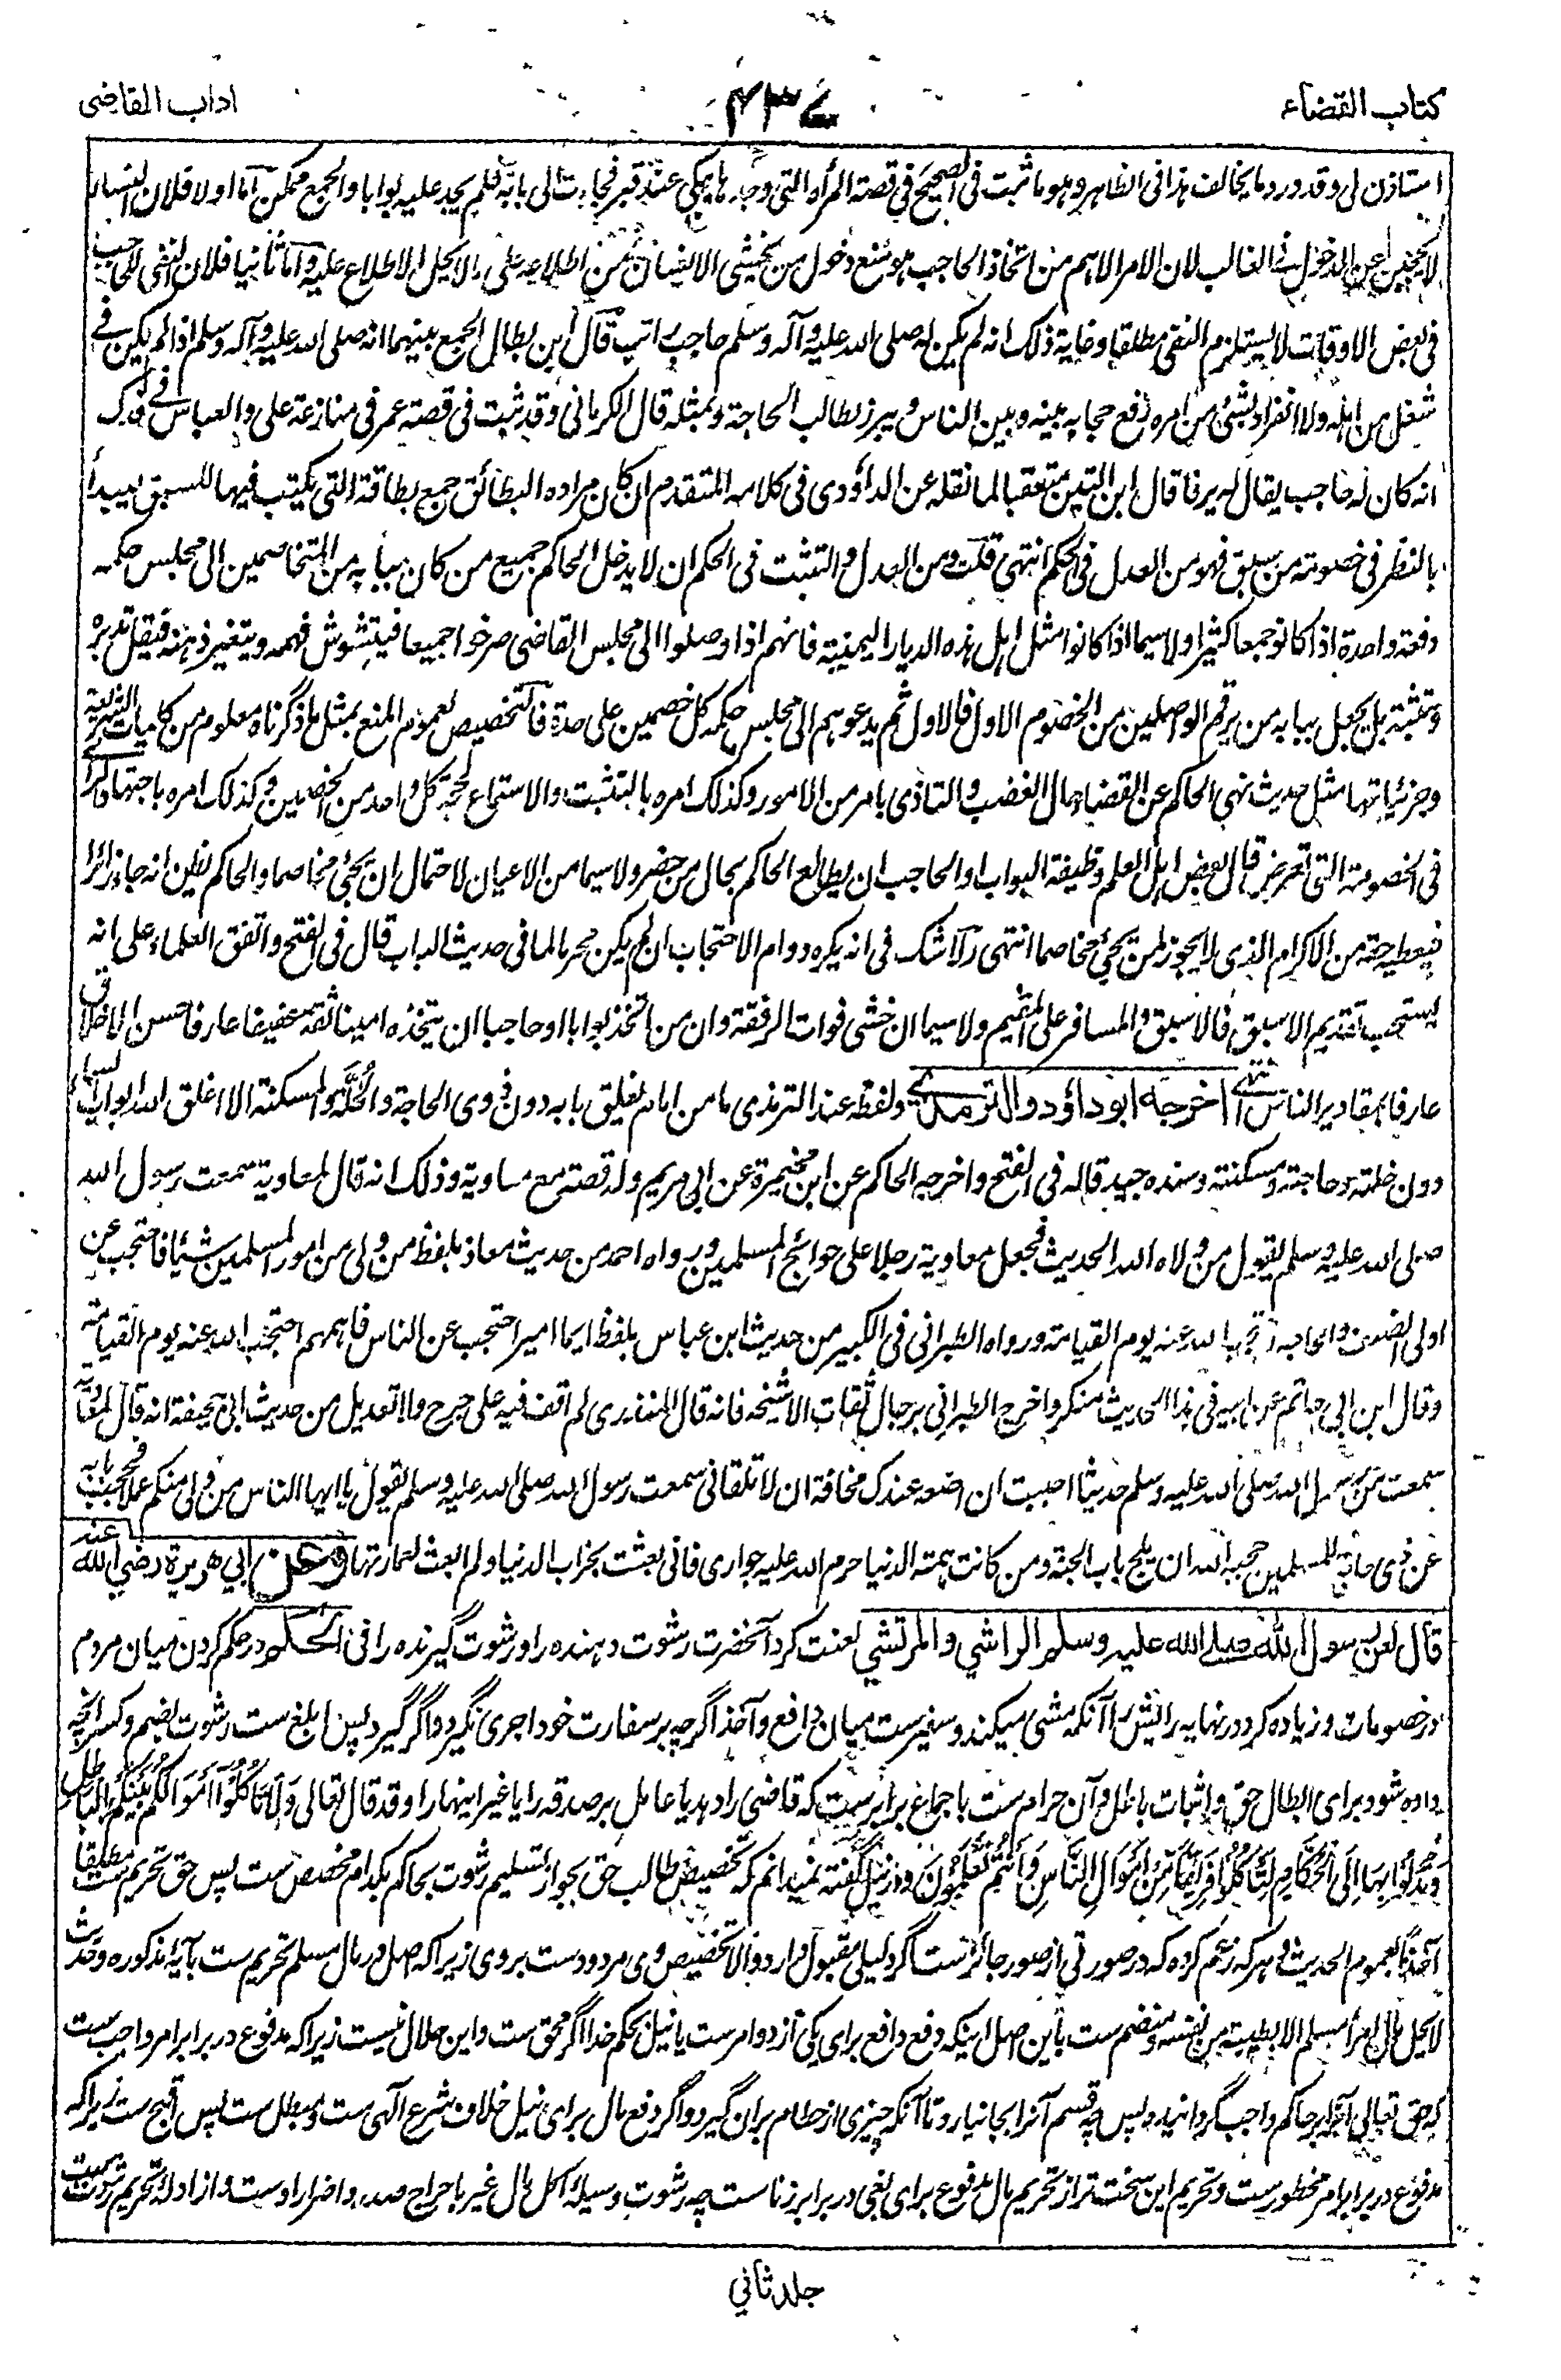 كتاب القضاء
۴۳۷
اداب القاضى
استاذن لى وقد ورد ما يخالف هذا فى الظاهر وهو ما ثبت فى الصحيح فى قصة المرأة التى وجدها تبكى عند قبر فجاءت الى بابه فلم يجد عليه بوابا والجمع ممكن اما اولا فلان النساء
لا يحجبن عن الدخول فى الغالب لان الامر الاهم من اتخاذ الحاجب هو منع دخول من يخشى الانسان من اطلاعه على ما لا يحل الاطلاع عليه واما ثانيا فلان النفى للحاجب
فى بعض الاوقات لا يستلزم النفى مطلقا وغاية ذلك انه لم يكن له صلى الله عليه وآله وسلم حاجب راتب قال ابن بطال الجمع بينهما انه صلى الله عليه وآله وسلم اذا لم يكن فے
شغل من اهله ولا انفراد بشئ من امره رفع حجابه بينه وبين الناس ويبرز لطالب الحاجة وبمثله قال الكرمانى وقد ثبت فى قصة عمر فى منازعة على والعباس فے فدك
انه كان له حاجب يقال له يرفا قال ابن التين متعقبا لما نقله عن الداؤدى فى كلامه المتقدم ان كان مراده البطائق جمع بطاقة التى يكتب فيها للسبق ليبدأ
بالنظر فى خصومة من سبق فهو من العدل فى الحكم انتهى قلت ومن العدل والتثبت فى الحكم ان لا يدخل الحاكم جميع من كان ببابه من المتخاصمين الى مجلس حكمه
دفعة واحدة اذا كانو جمعا كثيرا ولا سيما اذا كانوا مثل اهل هذه الديار اليمنية فانهم اذا وصلوا الى مجلس القاضى صرخوا جميعا فيتشوش فهمه ويتغير ذهنه فيقل تدبره
وتثبته بل يجعل ببابه من يرقم الواصلين من الخصوم الاول فالاول ثم يدعوهم الى مجلس حكمه كل خصمين على حدة فالتخصيص لعموم المنع بمثل ما ذكرناه معلوم من كليات الشريعة
وجزئياتها مثل حديث نهى الحاكم عن القضاء حال الغضب والتاذى بامر من الامور وكذلك امره بالتثبت والاستماع لحجة كل واحد من الخصمين وكذلك امره باجتهاد الراے
فى الخصومة التى تعرض قال بعض اهل العلم وظيفة البواب او الحاجب ان يطالع الحاكم بحال من حضر ولا سيما من الاعيان لاحتمال ان يجئ مخاصما والحاكم يظن انه جاء زائرا
فيعطيه حقه من الاكرام الذى لا يجوز لمن يجئ مخاصما انتهى ولا شك فى انه يكره دوام الاحتجاب ان لم يكن محرما لما فى حديث الباب قال فى الفتح واتفق العلماء على انه
يستحب تقديم الاسبق فالاسبق والمسافر على المقيم ولا سيما ان خشى فوات الرفقة وان من اتخذ بوابا او حاجبا ان يتخذه امينا ثقة عفيفا عارفا حسن الاخلاق
عارفا بمقادير الناس انتهى اخرجه ابو داؤد والترمذے ولفظه عند الترمذى ما من امام يغلق بابه دون ذوى الحاجة والخلة والمسكنة الا اغلق الله ابواب السماء
دون خلته وحاجته ومسكنته وسنده جيد قاله فى الفتح واخرجه الحاكم عن ابن مخيمرة عن ابى مريم وله قصة مع معاوية وذلك انه قال لمعاوية سمعت رسول الله
صلى الله عليه وسلم يقول من ولاه الله الحديث فجعل معاوية رجلا على حوائج المسلمين ورواه احمد من حديث معاذ بلفظ من ولى من امور المسلمين شيئا فاحتجب عن
اولى الضعف والحاجة احتجب الله عنه يوم القيامة ورواه الطبرانى فى الكبير من حديث ابن عباس بلفظ ايما امير احتجب عن الناس فاهمهم احتجب الله عنه يوم القيامة
وقال ابن ابى حاتم عن ابيه فى هذا الحديث منكر واخرج الطبرانى برجال ثقات الا شيخه فانه قال المنذرى لم اقف فيه على جرح ولا تعديل من حديث ابى جحيفة انه قال لمعاوية
سمعت من رسول الله صلى الله عليه وسلم حديثا احببت ان اضعه عندك مخافة ان لا تلقانى سمعت رسول الله صلى الله عليه وسلم يقول يا ايها الناس من ولى منكم عملا فحجب بابه
عن ذى حاجة للمسلمين حجبه الله ان يلج باب الجنة ومن كانت همته الدنيا حرم الله عليه جوارى فانى بعثت بخراب الدنيا ولم ابعث لعمارتها وعن ابي هريرة رضي الله عنه
قال لعن رسول الله صلے الله عليه وسلم الراشي والمرتشي لعنت كرد آنحضرت رشوت دهنده را ورشوت گيرنده را فى الحكم در حكم كردن ميان مردم
در خصومات وزياده كرد در نهايه رائش را آنكه مشى ميكند وسفيرست ميان دافع وآخذ اگرچه بر سفارت خود اجرى نگيرد و اگر گيرد پس ابلغ ست رشوت بضم وكسر انچه
داده شود براى ابطال حق واثبات باطل وآن حرام ست باجماع برابرست كه قاضى را دهد يا عامل بر صدقه را يا غير اينها را وقد قال تعالى وَلَا تَأْكُلُوْا أَمْوَالَكُمْ بَيْنَكُمْ بِالْبَاطِلِ
وَتُدْلُوْا بِهَا إِلَى الْحُكَّامِ لِتَأْكُلُوْا فَرِيْقًا مِنْ أَمْوَالِ النَّاسِ وَأَنْتُمْ تَعْلَمُوْنَ ودر نيل گفته نميدانم كه تخصيص طالب حق بجواز تسليم رشوت بحاكم بكدام مخصص ست پس حق تحريم ست مطلقا
آخذًا بعموم الحديث وهر كه زعم كرده كه در صورتى از صور جائزست اگر دليلى مقبول دارد والا تخصيص وى مردودست بروى زيراكه اصل در مال مسلم تحريم ست بآيۀ مذكوره وحديث
لا يحل مال امرأ مسلم الا بطيبة من نفسه ومنضم ست باين اصل اينكه دفع دافع براى يكى از دو امرست يا نيل حكم خدا اگر محق ست واين حلال نيست زيراكه مدفوع در برابر امر واجب ست
كه حق تعالى آنرا بر حاكم واجب گردانيده پس چه قسم آنرا بجا نيارد تا آنكه چيزى از حطام بران گيرد واگر دفع مال براى نيل خلاف شرع آلهى ست ومبطل ست پس اقبح ست زيراكه
مدفوع در برابر امر محظورست وتحريم اين سخت تر از تحريم مال مدفوع براى بغى در برابر زناست چه رشوت وسيلۀ اكل مال غير باحراج صدر واضرار اوست واز ادلۀ تحريم رشوت
جلد ثاني